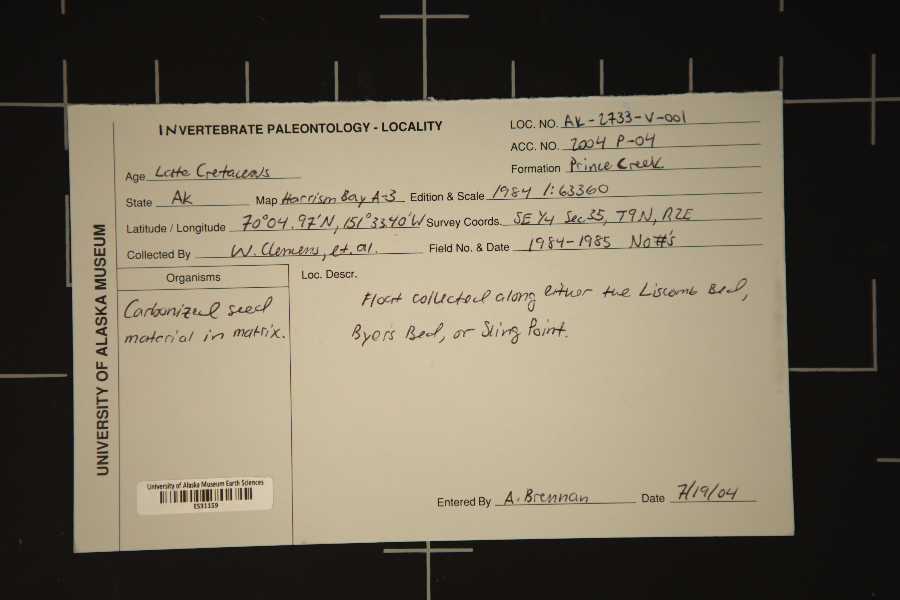 INVERTEBRATE PALEONTOLOGY - LOCALITY
LOC. NO. AK-2733-V-001
ACC. NO. 2004 P-04
Formation Prince Creek
Age Late Cretaceous
State AK Map Harrison Bay A-3 Edition & Scale 1984 1:63360
Latitude / Longitude 70°04.97'N, 151°33.40'W Survey Coords. SE 1/4 Sec 35, T9N, R2E
Collected By W. Clemens, et. al. Field No. & Date 1984-1985 No #'s
Organisms
Carbonized seed
material in matrix.
Loc. Descr.
Float collected along either the Liscomb Bed,
Byers Bed, or Sling Point.
UNIVERSITY OF ALASKA MUSEUM
University of Alaska Museum Earth Sciences
ES31159
Entered By A. Brennan Date 7/19/04